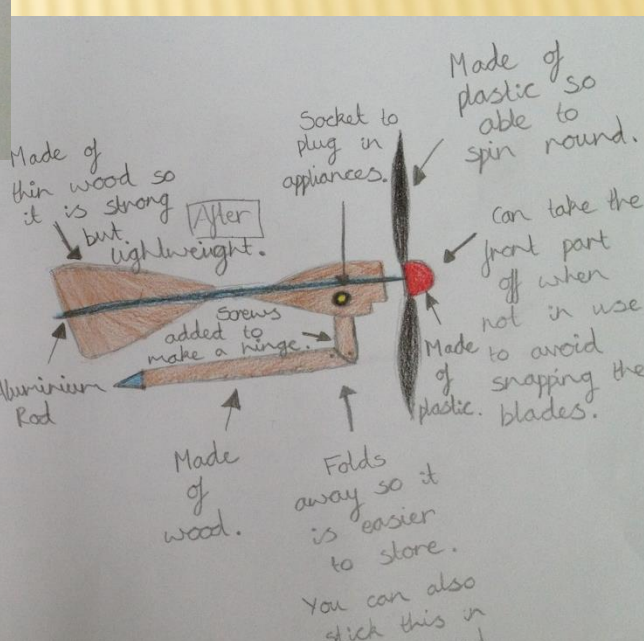 Made of
thin wood so
it is strong
but
lightweight.
After
Socket to
plug in
appliances.
Made of
plastic so
able to
spin round.
Can take the
front part
off when
not in use
to avoid
snapping the
blades.
Made
of
plastic.
Screws
added to
make a hinge.
Aluminium
Rod
Made
of
wood.
Folds
away so it
is easier
to store.
You can also
stick this in